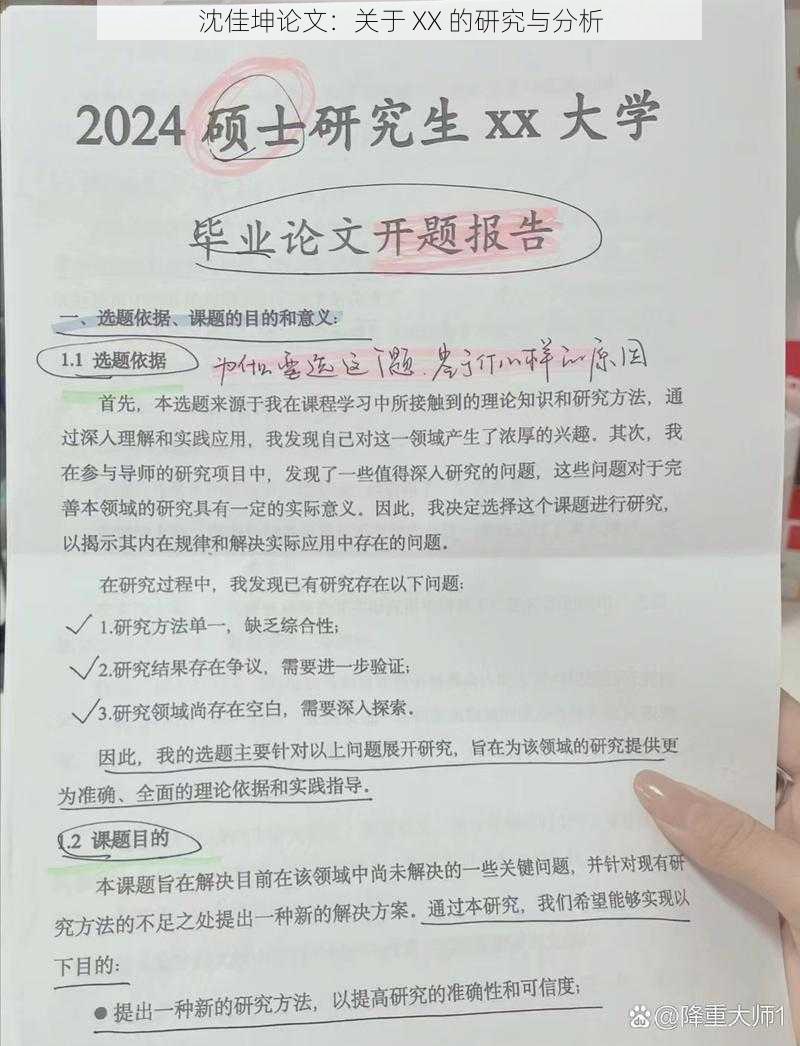 沈佳坤论文：关于 XX 的研究与分析
2024 硕士研究生 xx 大学
毕业论文开题报告
一、选题依据、课题的目的和意义：
1.1 选题依据 为什么要选这个题、基于什么样的原因
首先，本选题来源于我在课程学习中所接触到的理论知识和研究方法，通
过深入理解和实践应用，我发现自己对这一领域产生了浓厚的兴趣。其次，我
在参与导师的研究项目中，发现了一些值得深入研究的问题，这些问题对于完
善本领域的研究具有一定的实际意义。因此，我决定选择这个课题进行研究，
以揭示其内在规律和解决实际应用中存在的问题。
在研究过程中，我发现已有研究存在以下问题：
1.研究方法单一，缺乏综合性；
2.研究结果存在争议，需要进一步验证；
3.研究领域尚存在空白，需要深入探索。
因此，我的选题主要针对以上问题展开研究，旨在为该领域的研究提供更
为准确、全面的理论依据和实践指导。
1.2 课题目的
本课题旨在解决目前在该领域中尚未解决的一些关键问题，并针对现有研
究方法的不足之处提出一种新的解决方案。通过本研究，我们希望能够实现以
下目的：
● 提出一种新的研究方法，以提高研究的准确性和可信度；
@降重大师1